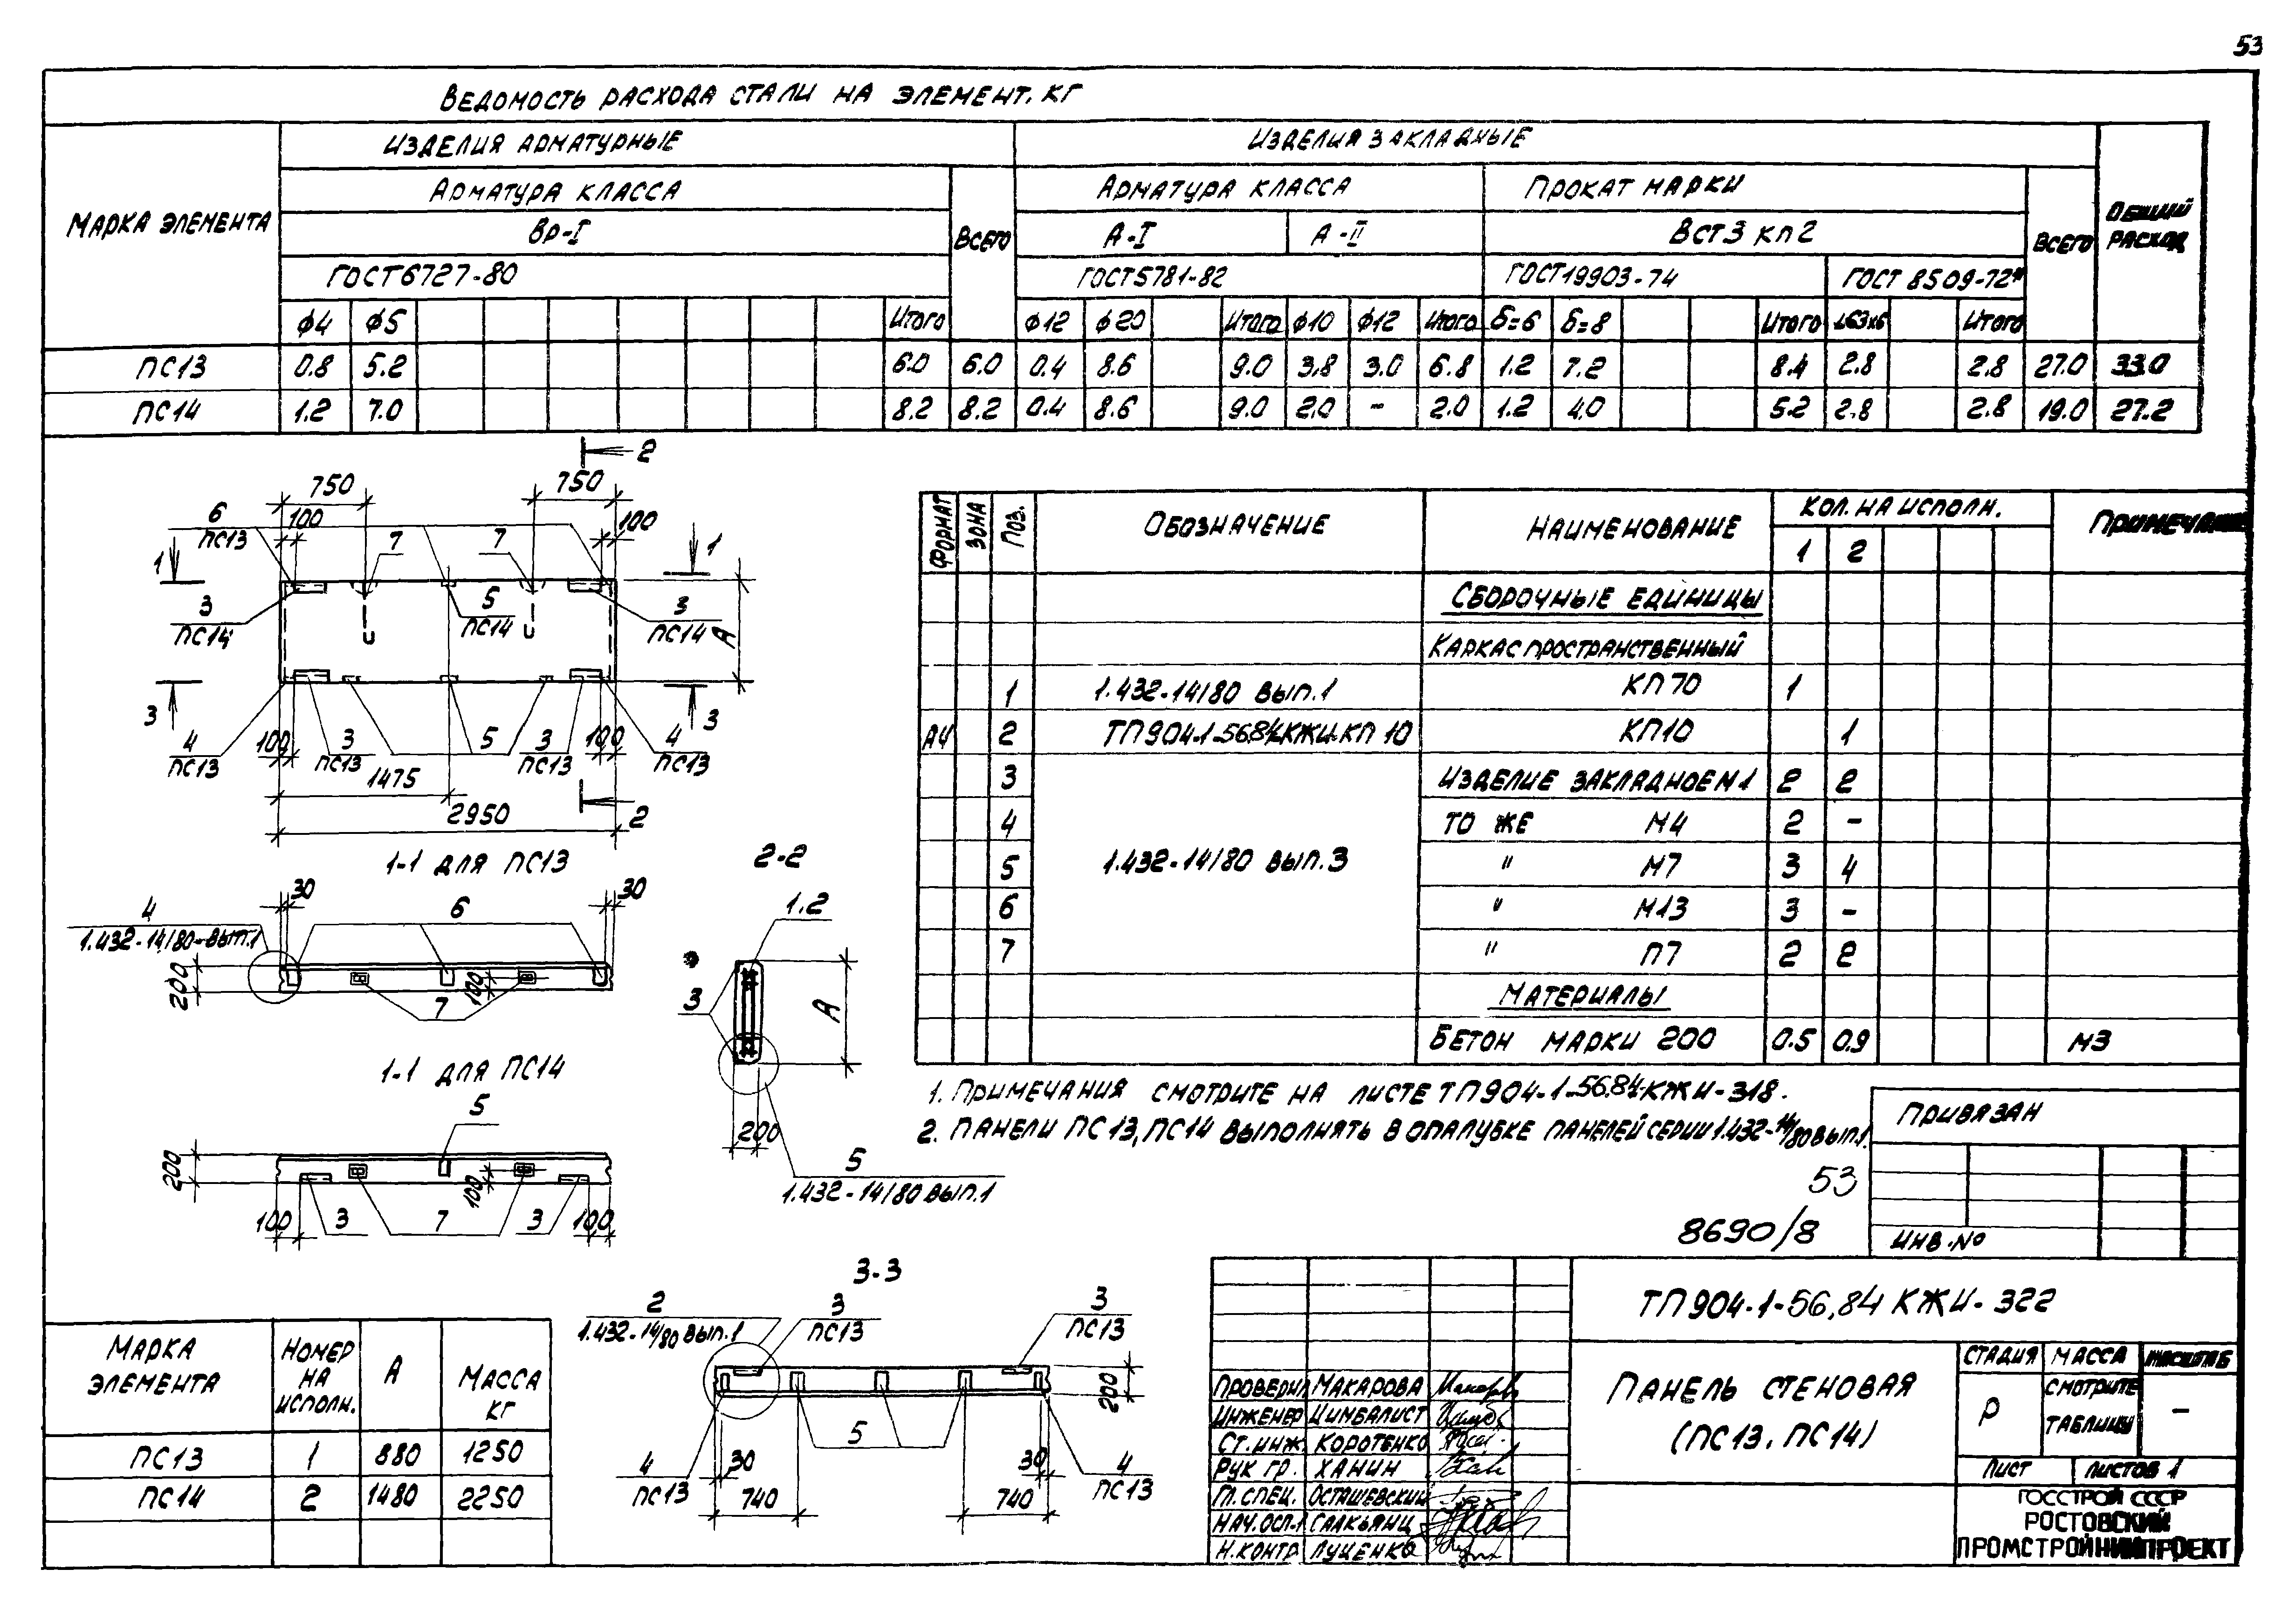 53
Ведомость расхода стали на элемент, кг
Марка элемента
Изделия арматурные
Изделия закладные
Общий расход
Арматура класса
Всего
Арматура класса
Прокат марки
Всего
Вр-I
А-I
А-II
Вст3 кп2
ГОСТ 6727-80
ГОСТ 5781-82
ГОСТ 19903-74
ГОСТ 8509-72*
ф4 ф5 Итого ф12 ф20 Итого ф10 ф12 Итого δ=6 δ=8 Итого L63х6 Итого
ПС13 0.8 5.2 6.0 6.0 0.4 8.6 9.0 3.8 3.0 6.8 1.2 7.2 8.4 2.8 2.8 27.0 33.0
ПС14 1.2 7.0 8.2 8.2 0.4 8.6 9.0 2.0 - 2.0 1.2 4.0 5.2 2.8 2.8 19.0 27.2
2
750 750
6
ПС13
100
7 7
100
1 1
3
ПС14
5
ПС14
3
ПС14
А
3 3
4
ПС13
100
3
ПС13
5
3
ПС13
100
4
ПС13
1475
2950
2
1-1 для ПС13
30 30
4
1.432-14/80-вып.1
6
200
100
7
1-1 для ПС14
5
200
100
100 3 7 3 100
2-2
1.2
3
А
200
5
1.432-14/80 вып.1
3-3
2
1.432-14/80 вып.1
3
ПС13
3
ПС13
200
5
4
ПС13
30 30
4
ПС13
740 740
Формат Зона Поз. Обозначение Наименование Кол. на исполн. Примечание
1 2
Сборочные единицы
Каркас пространственный
1 1.432-14/80 вып.1 КП70 1
А4 2 ТП904-1-56.84-КЖИ-КП10 КП10 1
3 Изделие закладное М1 2 2
4 То же М4 2 -
5 1.432-14/80 вып.3 " М7 3 4
6 " М13 3 -
7 " П7 2 2
Материалы
Бетон марки 200 0.5 0.9 м3
1. Примечания смотрите на листе ТП904-1-56.84-КЖИ-318.
2. Панели ПС13, ПС14 выполнять в опалубке панелей серии 1.432-14/80 вып.1.
53
8690/8
Привязан
Инв.№
Марка элемента Номер на исполн. А Масса кг
ПС13 1 880 1250
ПС14 2 1480 2250
Проверил Макарова
Инженер Цимбалист
Ст.инж. Коротенко
Рук гр. Ханин
Гл.спец. Осташевский
Нач.осп-1 Саакьянц
Н.контр Луценко
ТП904-1-56.84 КЖИ-322
Панель стеновая
(ПС13, ПС14)
Стадия Масса Масштаб
Р смотрите таблицу -
Лист Листов 1
ГОССТРОЙ СССР
РОСТОВСКИЙ
ПРОМСТРОЙНИИПРОЕКТ